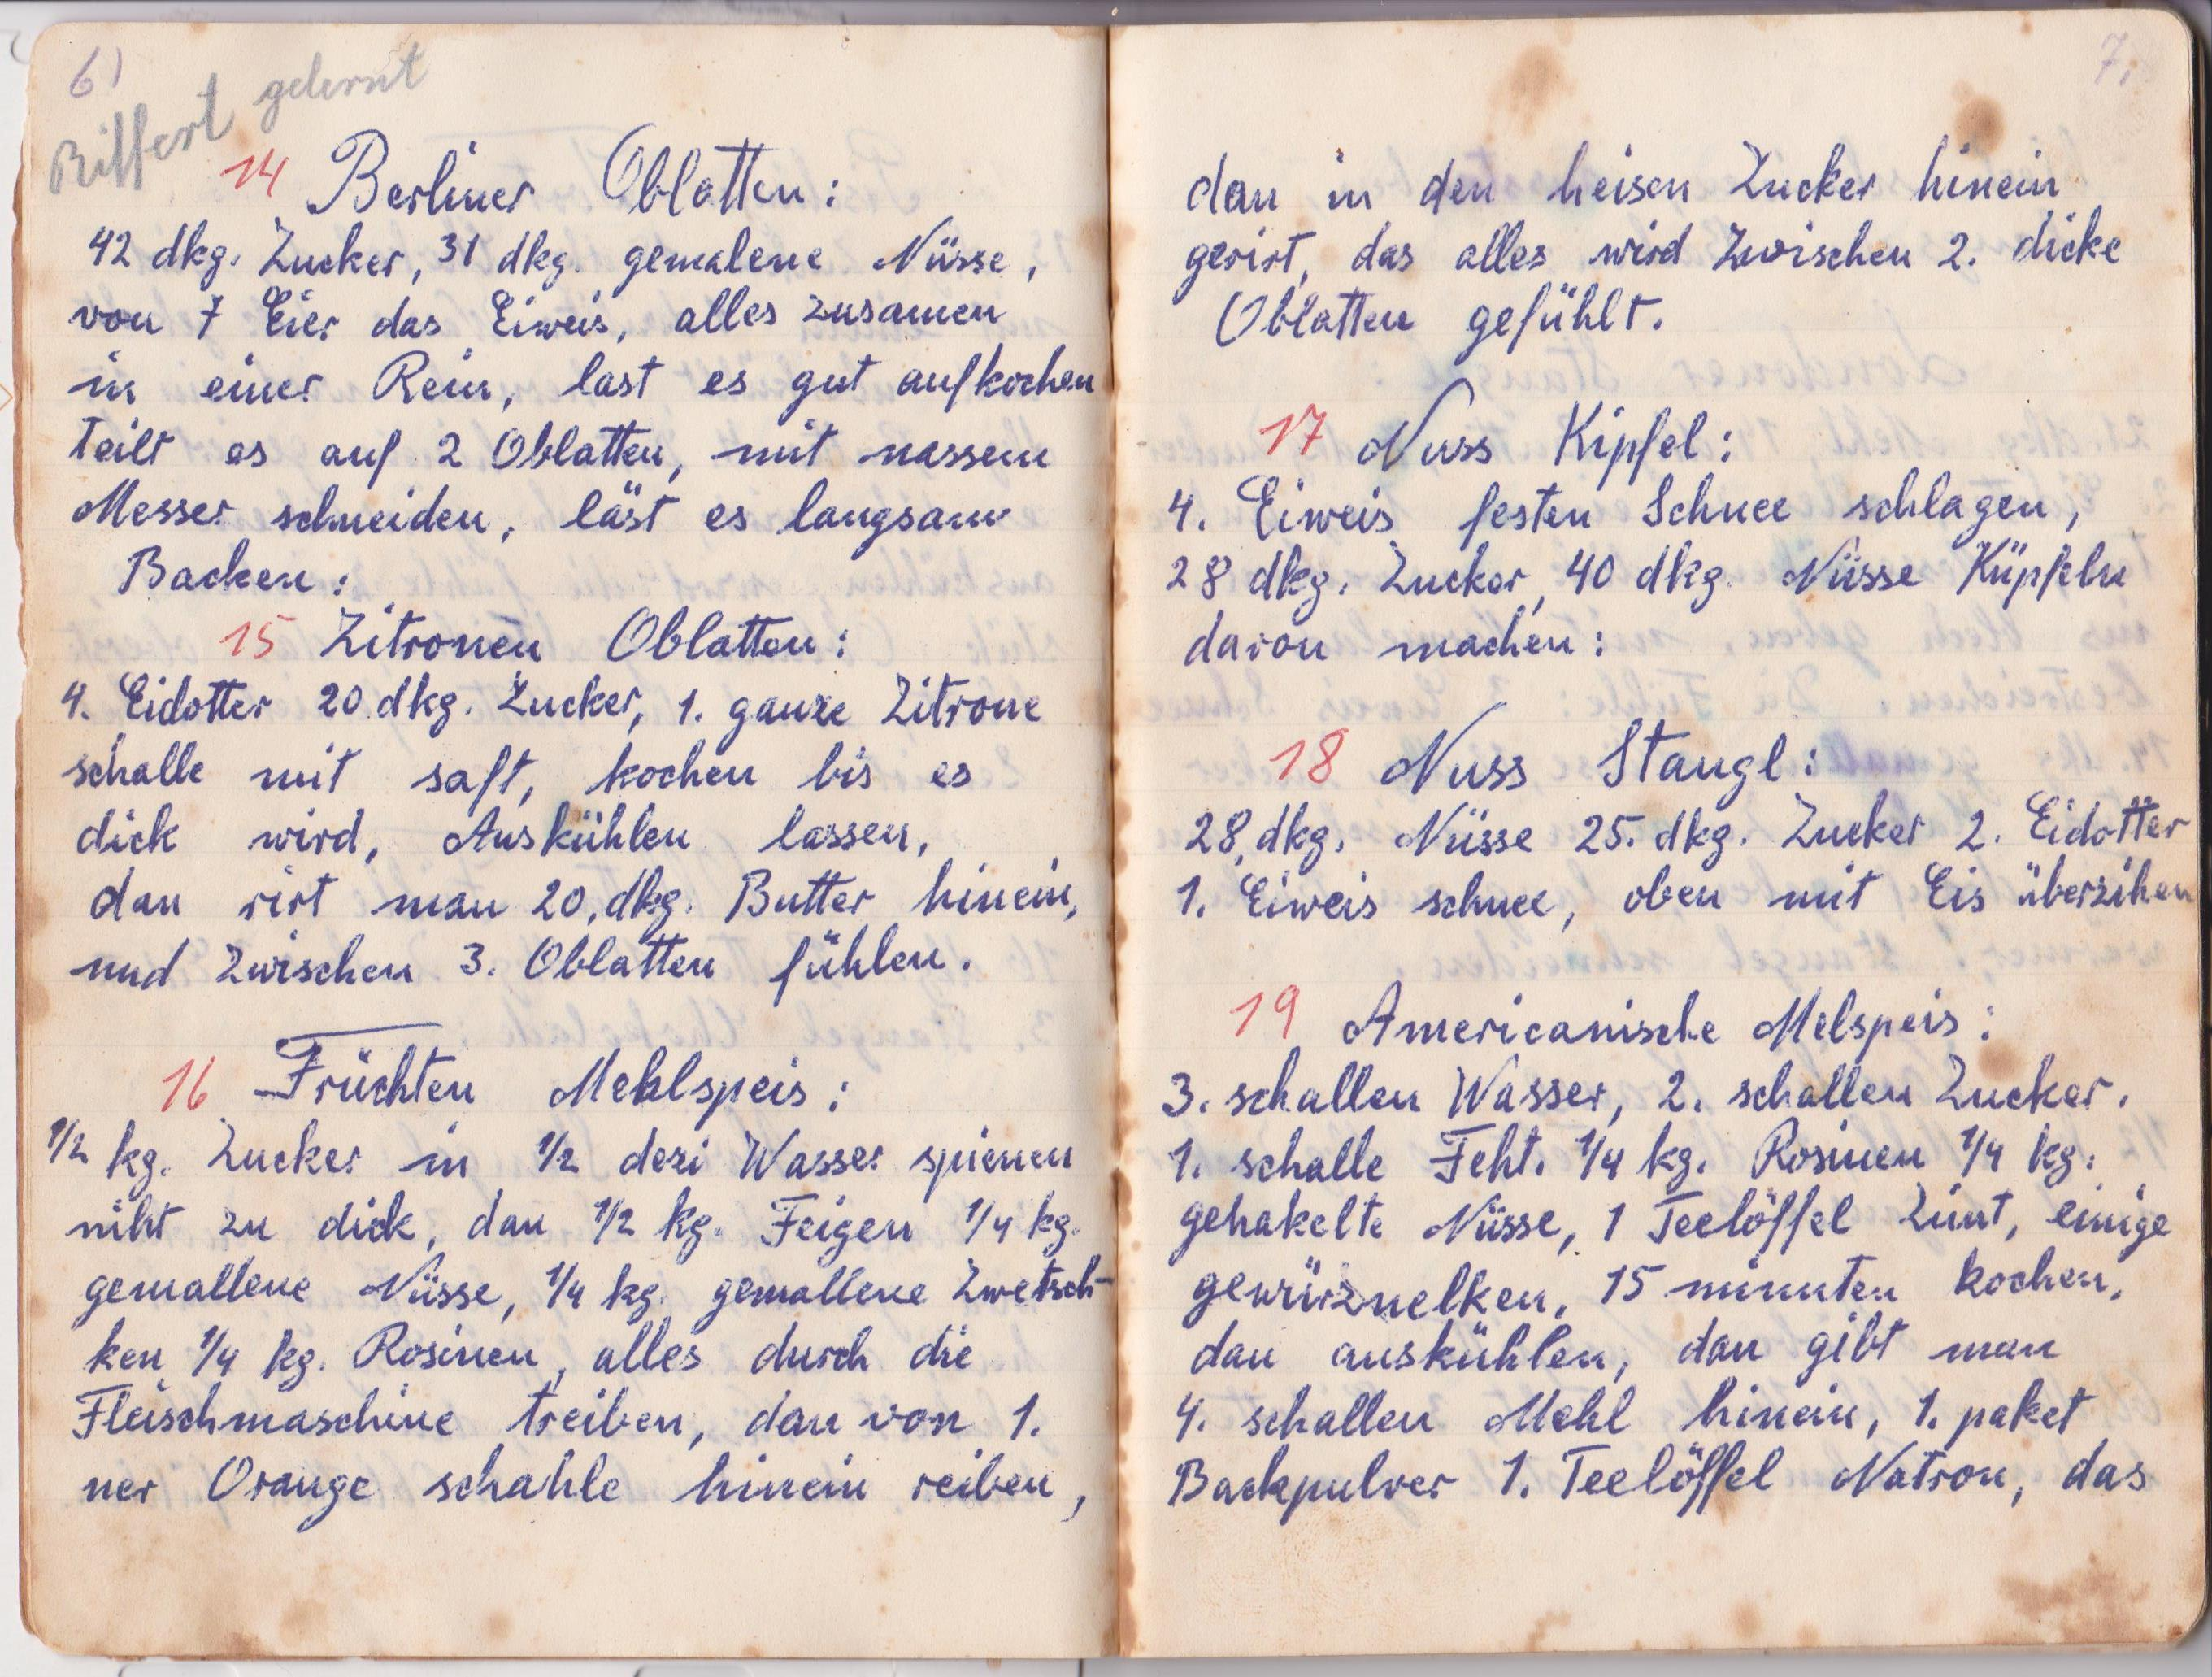 6)
gelernt
14 Berliner Oblatten:
42 dkg. Zucker, 31 dkg. gemalene Nüsse,
von 7 Eier das Eiweis, alles zusamen
in einer Rein, last es gut aufkochen
teilt es auf 2 Oblatten, mit nassem
Messer schneiden, läst es langsam
Backen:
15 Zitronen Oblatten:
4. Eidotter 20 dkg. Zucker, 1. ganze Zitrone
schalle mit saft, kochen bis es
dick wird, Auskühlen lassen,
dan rirt man 20, dkg. Butter hinein,
und Zwischen 3. Oblatten fühlen.
16 Früchten Mehlspeis:
1/2 kg. Zucker in 1/2 dezi Wasser spienen
niht zu dick, dan 1/2 kg. Feigen 1/4 kg.
gemallene Nüsse, 1/4 kg. gemallene Zwetsch-
ken 1/4 kg. Rosinen, alles durch die
Fleischmaschine treiben, dan von 1.
ner Orange schahle hinein reiben,
7.
dan in den heisen Zucker hinein
gerirt, das alles wird Zwischen 2. dicke
Oblatten gefühlt.
17 Nuss Kipfel:
4. Eiweis festen Schnee schlagen,
28 dkg. Zucker, 40 dkg. Nüsse Küpfeln
davon machen:
18 Nuss Stangl:
28, dkg. Nüsse 25. dkg. Zucker 2. Eidotter
1. Eiweis schnee, oben mit Eis überzihen
19 Americanische Melspeis:
3. schallen Wasser, 2. schallen Zucker.
1. schalle Feht. 1/4 kg. Rosinen 1/4 kg.
gehakelte Nüsse, 1 Teelöffel Zimt, einige
gewürznelken, 15 minuten kochen,
dan auskühlen, dan gibt man
4. schallen Mehl hinein, 1. paket
Backpulver 1. Teelöffel Natron, das